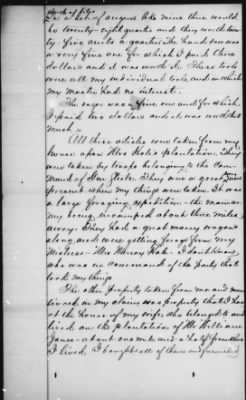 for a set of augurs like mine there would
be twenty eight quarts and they worth twenty
five cents a quart. The hand saw was
a very fine one for which I paid three
dollars and it was worth it. These tools
were all my individual tools, and in which
my master had no interest.
The rags was a fine one and for which
I paid two dollars and it was worth that
much.
All these articles were taken from my
house upon Mrs Hale's plantation. They
were taken by troops belonging to the com-
mand of Gen. There was a great
present when my things were taken. It was
a large foraging expedition the main ar-
my being encamped about three miles
away. They had a great many wagons
along, and were getting forage from my
Mistress - Mrs Harvey Hale. I don't know
who was in command of the party that
took my things
The other property taken from me and men-
tioned in my claim was property that I had
at the house of my wife, she belonged to and
lived on the plantation of Mr William
Jones about one mile and a half from where
I lived. I bought all of these and